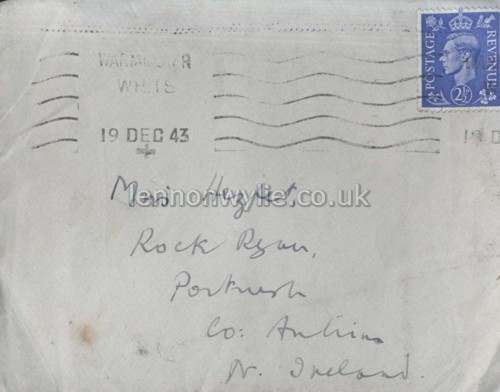 WARMINSTER
WILTS
19 DEC 43
POSTAGE REVENUE
2½
19 D
lennonwylie.co.uk
Miss Hezlet,
Rock Ryan,
Portrush
Co: Antrim
N. Ireland.